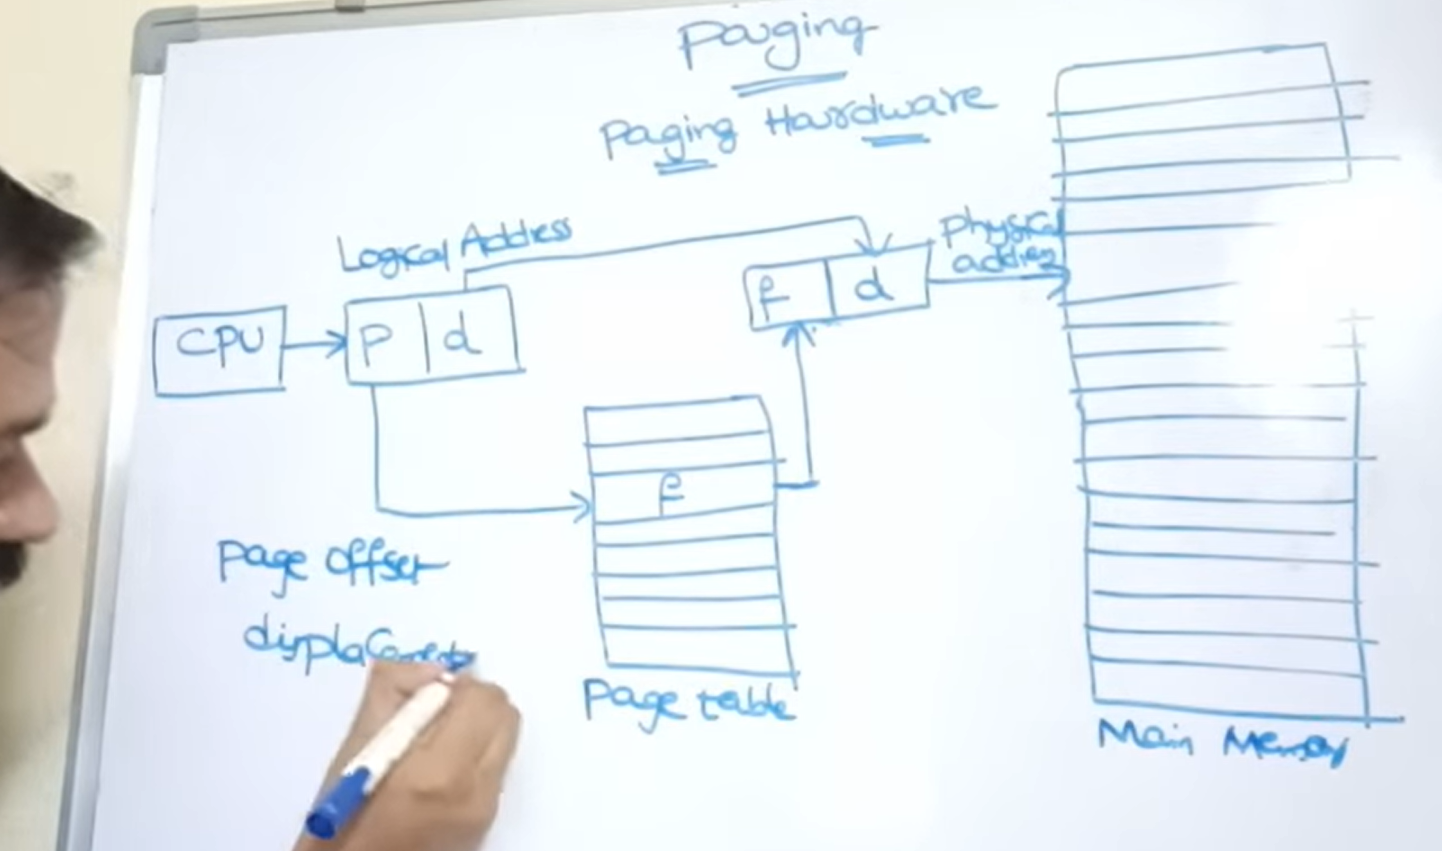 Paging
Paging Hardware
Logical Address
Physical
address
CPU
P d
f d
f
Page offset
displacement
Page table
Main Memory